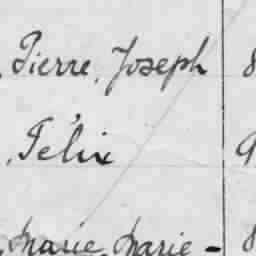 Pierre, Joseph 8
, Félix 9
, Marie, Marie - 8